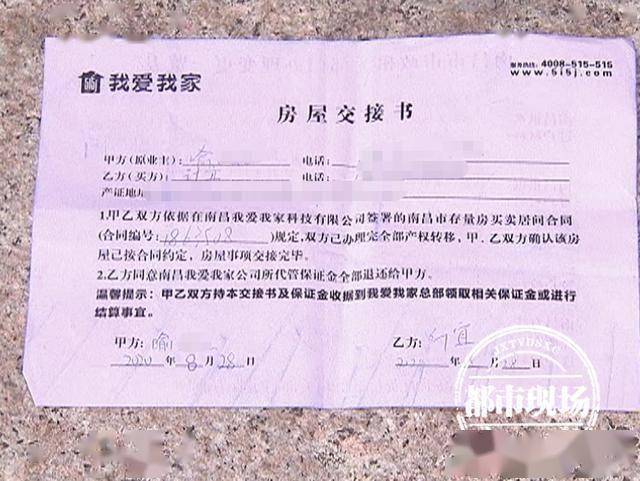 我爱我家
服务热线：4008-515-515
www.5i5j.com
房屋交接书
甲方(原业主)：喻 电话：
乙方(买方)： 电话：
产证地址
1.甲乙双方依据在南昌我爱我家科技有限公司签署的南昌市存量房买卖居间合同
(合同编号： )规定，双方已办理完全部产权转移，甲、乙双方确认该房
屋已按合同约定，房屋事项交接完毕。
2.乙方同意南昌我爱我家公司所代管保证金全部退还给甲方。
温馨提示：甲乙双方持本交接书及保证金收据到我爱我家总部领取相关保证金或进行
结算事宜。
甲方：喻 乙方：
2020 年 8 月 28 日 2020 年 月 28 日
JXTVDSXC
都市现场